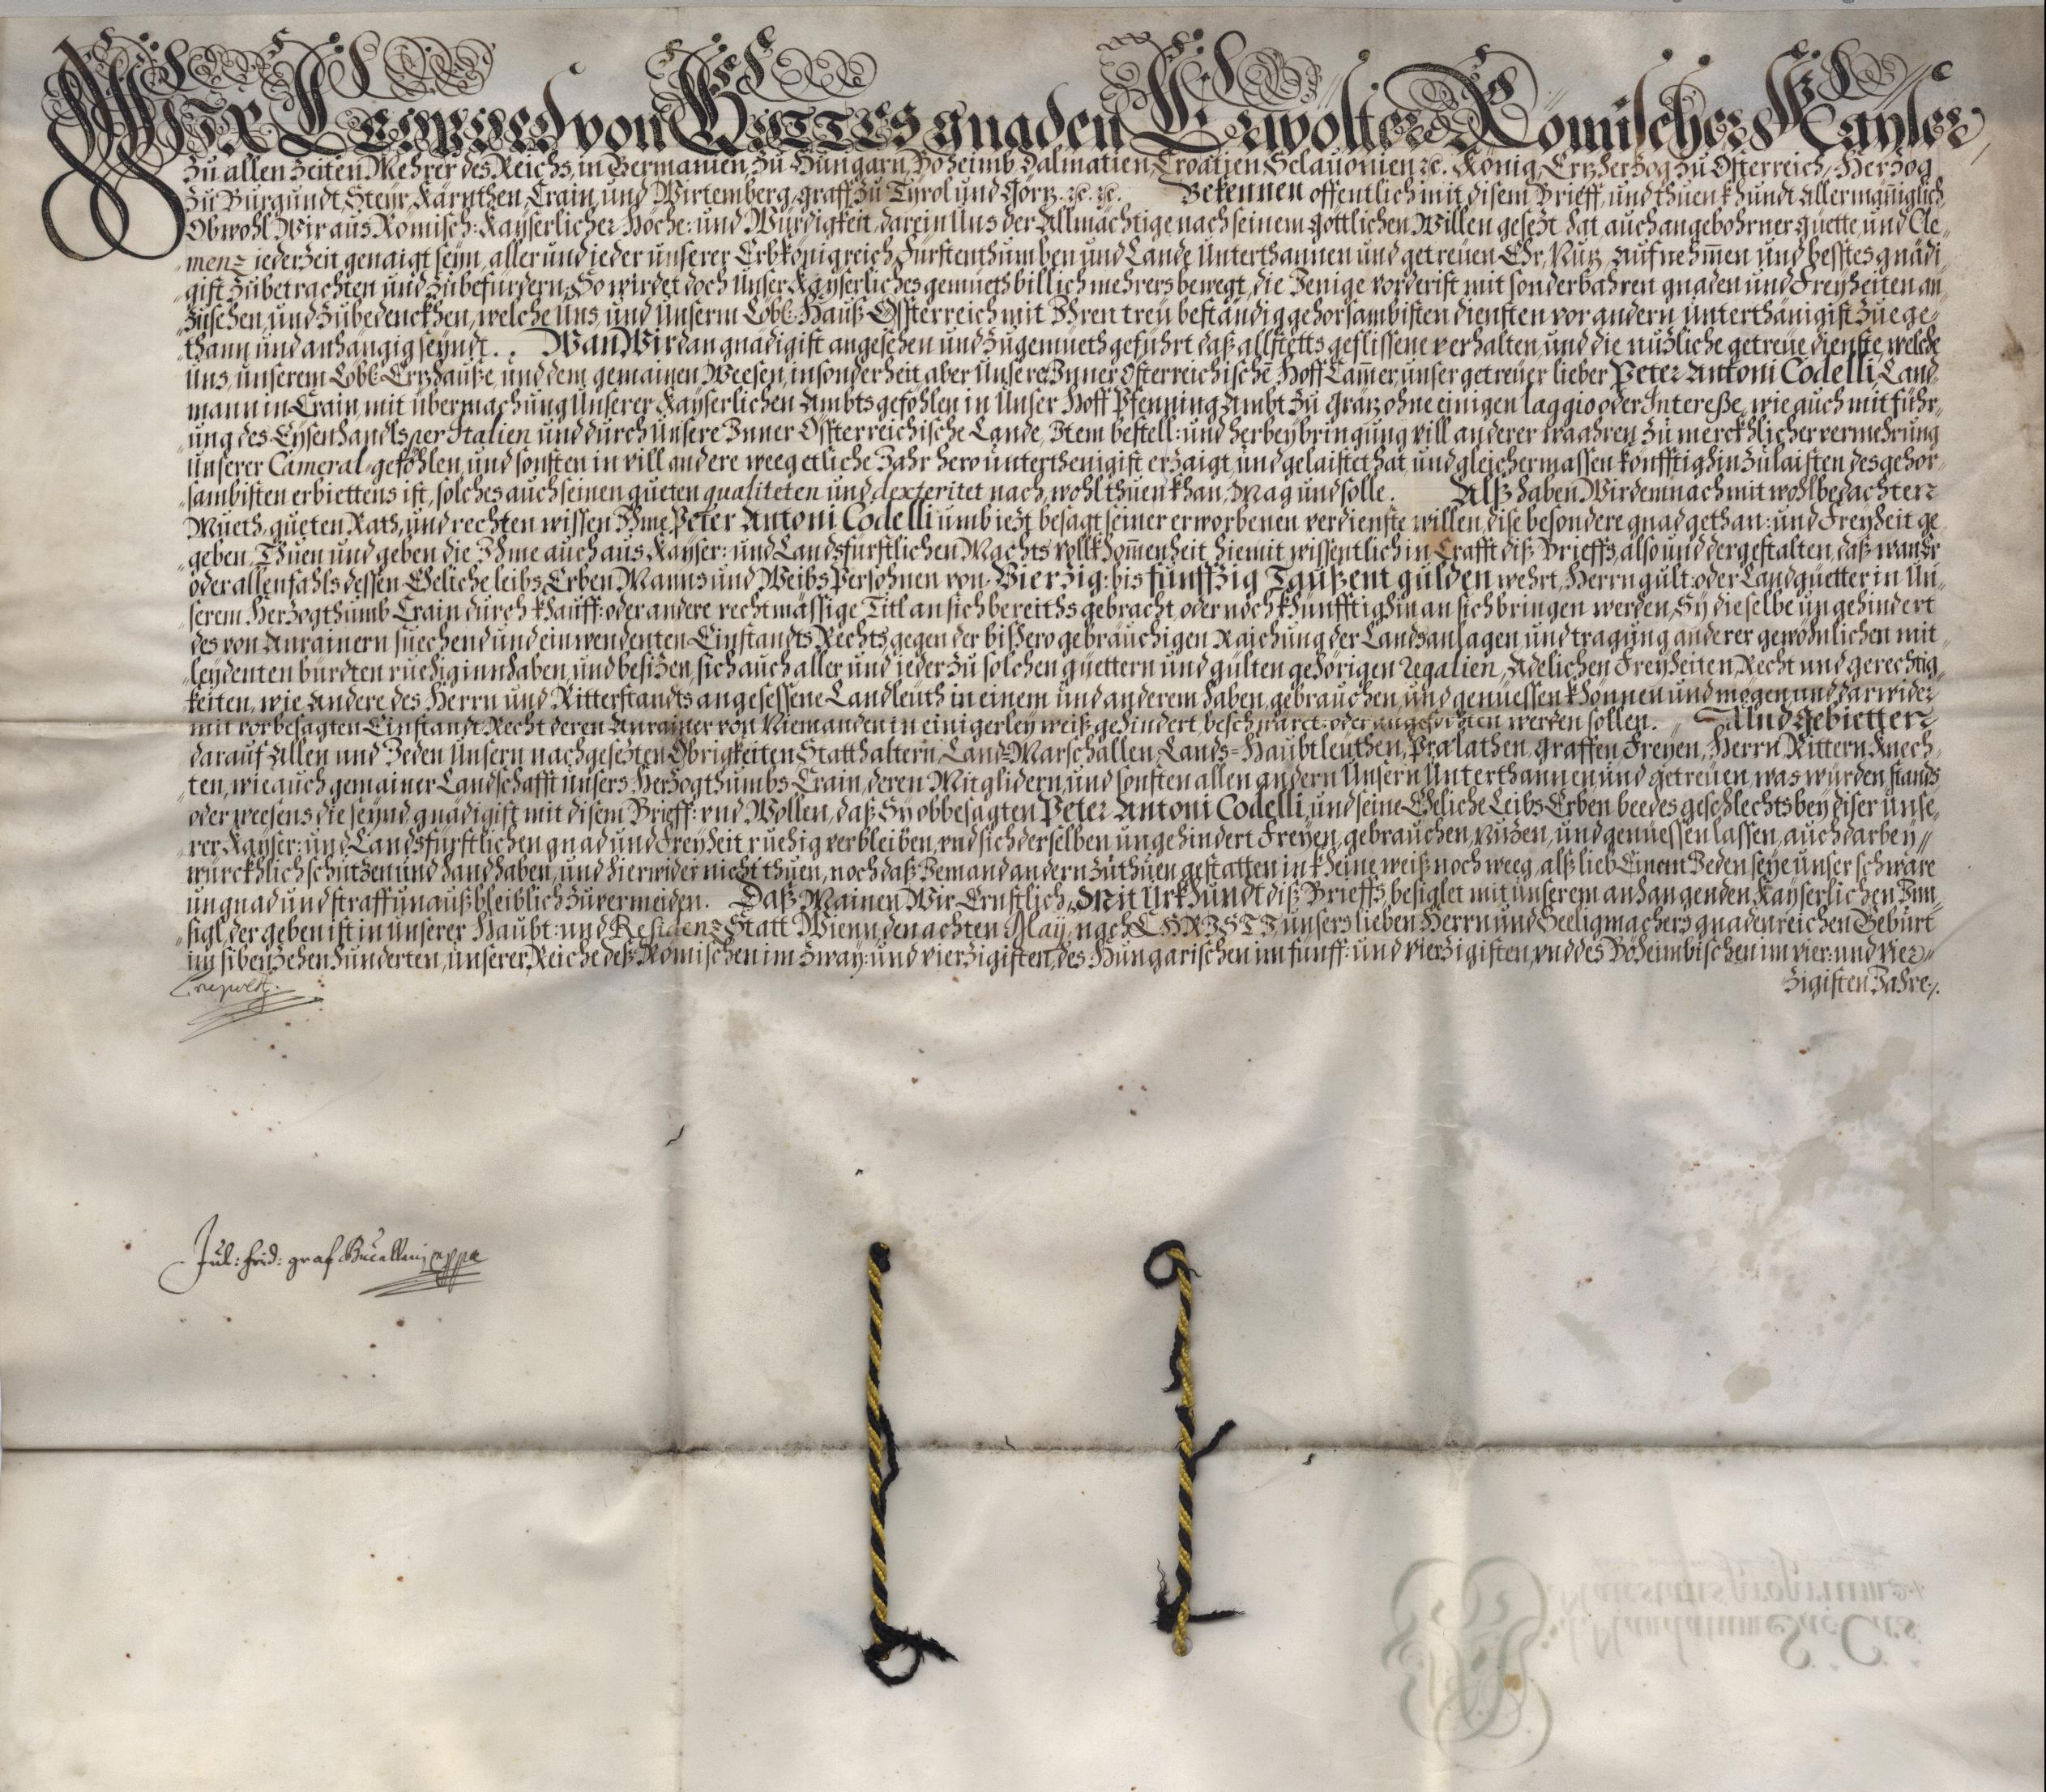 Wir Leopold von Gottes gnaden Erwölter Römischer Kayser
zu allen zeiten Mehrer des Reichs, in Germanien, zu Hungarn, Boheimb, Dalmatien, Croatien, Sclavonien ꝛc. König, Ertzherzog zu Osterreich, Herzog
zu Burgundt, Steyr, Kärnthen, Crain, und Wirtemberg, graff zu Tyrol und Görz. ꝛc. ꝛc. Bekennen offentlich mit disem Brieff, und thuen khundt Allermäniglich,
Obwohl Wir aus Römisch: Kayserlicher Höche: und Würdigkeit, darein Uns der Allmächtige nach seinem göttlichen Willen gesezt hat, auch angebohrner güette, und Cle-
menz iederzeit genaigt seyn, aller und ieder unserer Erbkönigreich, Fürstenthumben und Lande Unterthannen und getreuen Ehr, Nuz, Aufnehmen und besstes gnädi-
gist zubetrachten und zubefürdern; So wirdet doch Unser Kayserliches gemueth billich mehrers bewegt, die Jenige vorderist mit sonderbahren gnaden und Freyheiten an-
zusehen, und zubedenckhen, welche Uns, und Unserm Löbl: Hauß Össterreich mit Ihren treu beständig gehorsambisten diensten vor andern unterthänigist zuege-
thann und anhängig seyndt. Wan Wir dan gnädigist angesehen und zugemueth geführt daß allstetts geflissene verhalten, und die nuzliche getreue dienste, welche
Uns, unserem Löbl: Erzhauße, und dem gemainen Weesen, insonderheit aber Unserer Inner Osterreichischē Hoff Cam̄er, unser getreuer lieber Peter Antoni Codelli, Land-
mann in Crain, mit übermachung Unserer Kayserlichen Ambts geföhlen in Unser Hoff Pfenning Ambt zu Gräz ohne einigen laggio oder Intereße, wie auch mit führ-
ung des Eysenhandls per Italien und durch Unsere Inner Össterreichische Lande, Item bestell: und herbeybringung vill anderer waahren zu merckhlicher vermehrung
Unserer Cameral-geföhlen, und sonsten in vill andere weeg etliche Jahr hero unterthenigist erzaigt, und gelaistet hat, und gleichermassen könfftighin zulaisten des gehor-
sambisten erbiettens ist, solches auch seinen gueten qualiteten und dexteritet nach, wohl thuen khan, Mag und solle. Alß haben Wir demnach mit wohlbedachten
Mueth, gueten Rath, und rechten wissen Ihme Peter Antoni Codelli umb iezt besagt seiner erworbenen verdienste willen, dise besondere gnad gethan: und Freyheit ge-
geben, Thuen und geben die Ihme auch aus Kayser: und Landsfürstlichen Machts vollkhom̄enheit, hiemit wissentlich in Crafft diß Brieffs, also und dergestalten, daß wan Er
oder allenfahls dessen Eheliche leibs Erben Manns und Weibs Persohnen von Vierzig: bis funffzig Taußent gulden wehrt, Herrn gült: oder Landgüetter in Un-
serem Herzogthumb Crain durch khauff: oder andere rechtmässige Titl an sich bereiths gebracht, oder noch khünfftighin an sich bringen werden, Sy dieselbe ungehindert
des von Anrainern suechend und einwendenten Einstandts Rechts, gegen der bißhero gebräuchigen Raichung der Landsanlagen, und tragung anderer gewöhnlichen mit-
leydenten bürdten ruedig innhaben, und besizen, sich auch aller und ieder zu solchen güettern und gülten gehörigen Regalien, Adelichen Freyheiten, Recht und gerechtig-
keiten, wie Andere des Herrn und Ritterstandts angesessene Landleuth in einem und anderem haben, gebrauchen, und genuessen khönnen und mögen, und darwider
mit vorbesagten Einstandt Recht deren Anrainer von Niemanden in einigerley weiß gehindert, beschwäret: oder angefochten werden sollen. Und gebietten
darauf Allen und Jeden Unsern nachgesezten Obrigkeiten, Statthaltern, Land-Marschallen, Lands-Haubtleuthen, Prælathen, graffen, Freyen, Herrn, Rittern, Knech-
ten, wie auch gemainer Landschafft unsers Herzogthumbs Crain, deren Mitglidern, und sonsten allen andern Unsern Unterthannen und getreuen, was würden, stands
oder weesens die seynd, gnädigist mit disem Brieff: und Wollen, daß Sy obbesagten Peter Antoni Codelli, und seine Eheliche Leibs Erben beedes geschlechts bey diser unse-
rer Kayser: und Landsfürstlichen gnad und Freyheit ruehig verbleiben, und sich derselben ungehindert Freyen, gebrauchen, Nuzen, und genuessen lassen, auch darbey
würckhlich schutzen und handhaben, und hierwider nicht thuen, noch daß Jemand andern zuthuen gestatten in kheine weiß noch weeg, alß lieb Einem Jeden seye unser schwäre
ungnad und straff unaußbleiblich zuvermeiden. Daß Mainen Wir Ernstlich, Mit Urkhundt diß Brieffs, besiglet mit unserem anhangenden Kayserlichen Inn-
sigl, der geben ist in unserer Haubt: und Residenz Statt Wienn, den achten May, nach CHRISTI, unsers lieben Herrn und Seeligmachers gnadenreichen Geburt
im sibenzehenhunderten, unserer Reiche deß Römischen im zway: und vierzigisten, des Hungarischen im fünff: und vierzigisten, und des Böheimbischen im vier: und vier-
zigisten Jahre.
Leopold
Jul: frid: graf Bucelleni